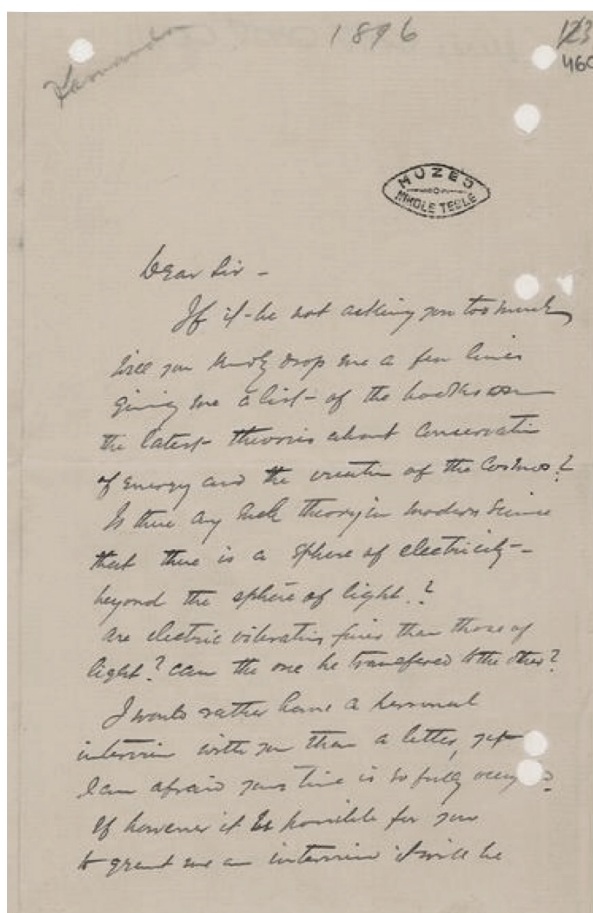 1896
123
460
MUZEJ
NIKOLE TESLE
Dear Sir –
If it be not asking you too much
will you kindly drop me a few lines
giving me a list of the books on
the latest theories about Conservation
of Energy and the creation of the Cosmos?
Is there any such theory in modern Science
that there is a sphere of electricity –
beyond the sphere of light.?
are electric vibrations finer than those of
light? Can the one be transfered to the other?
I would rather have a personal
interview with you than a letter, yet
I am afraid your time is so fully occupied.
If however it be possible for you
to grant me an interview it will be